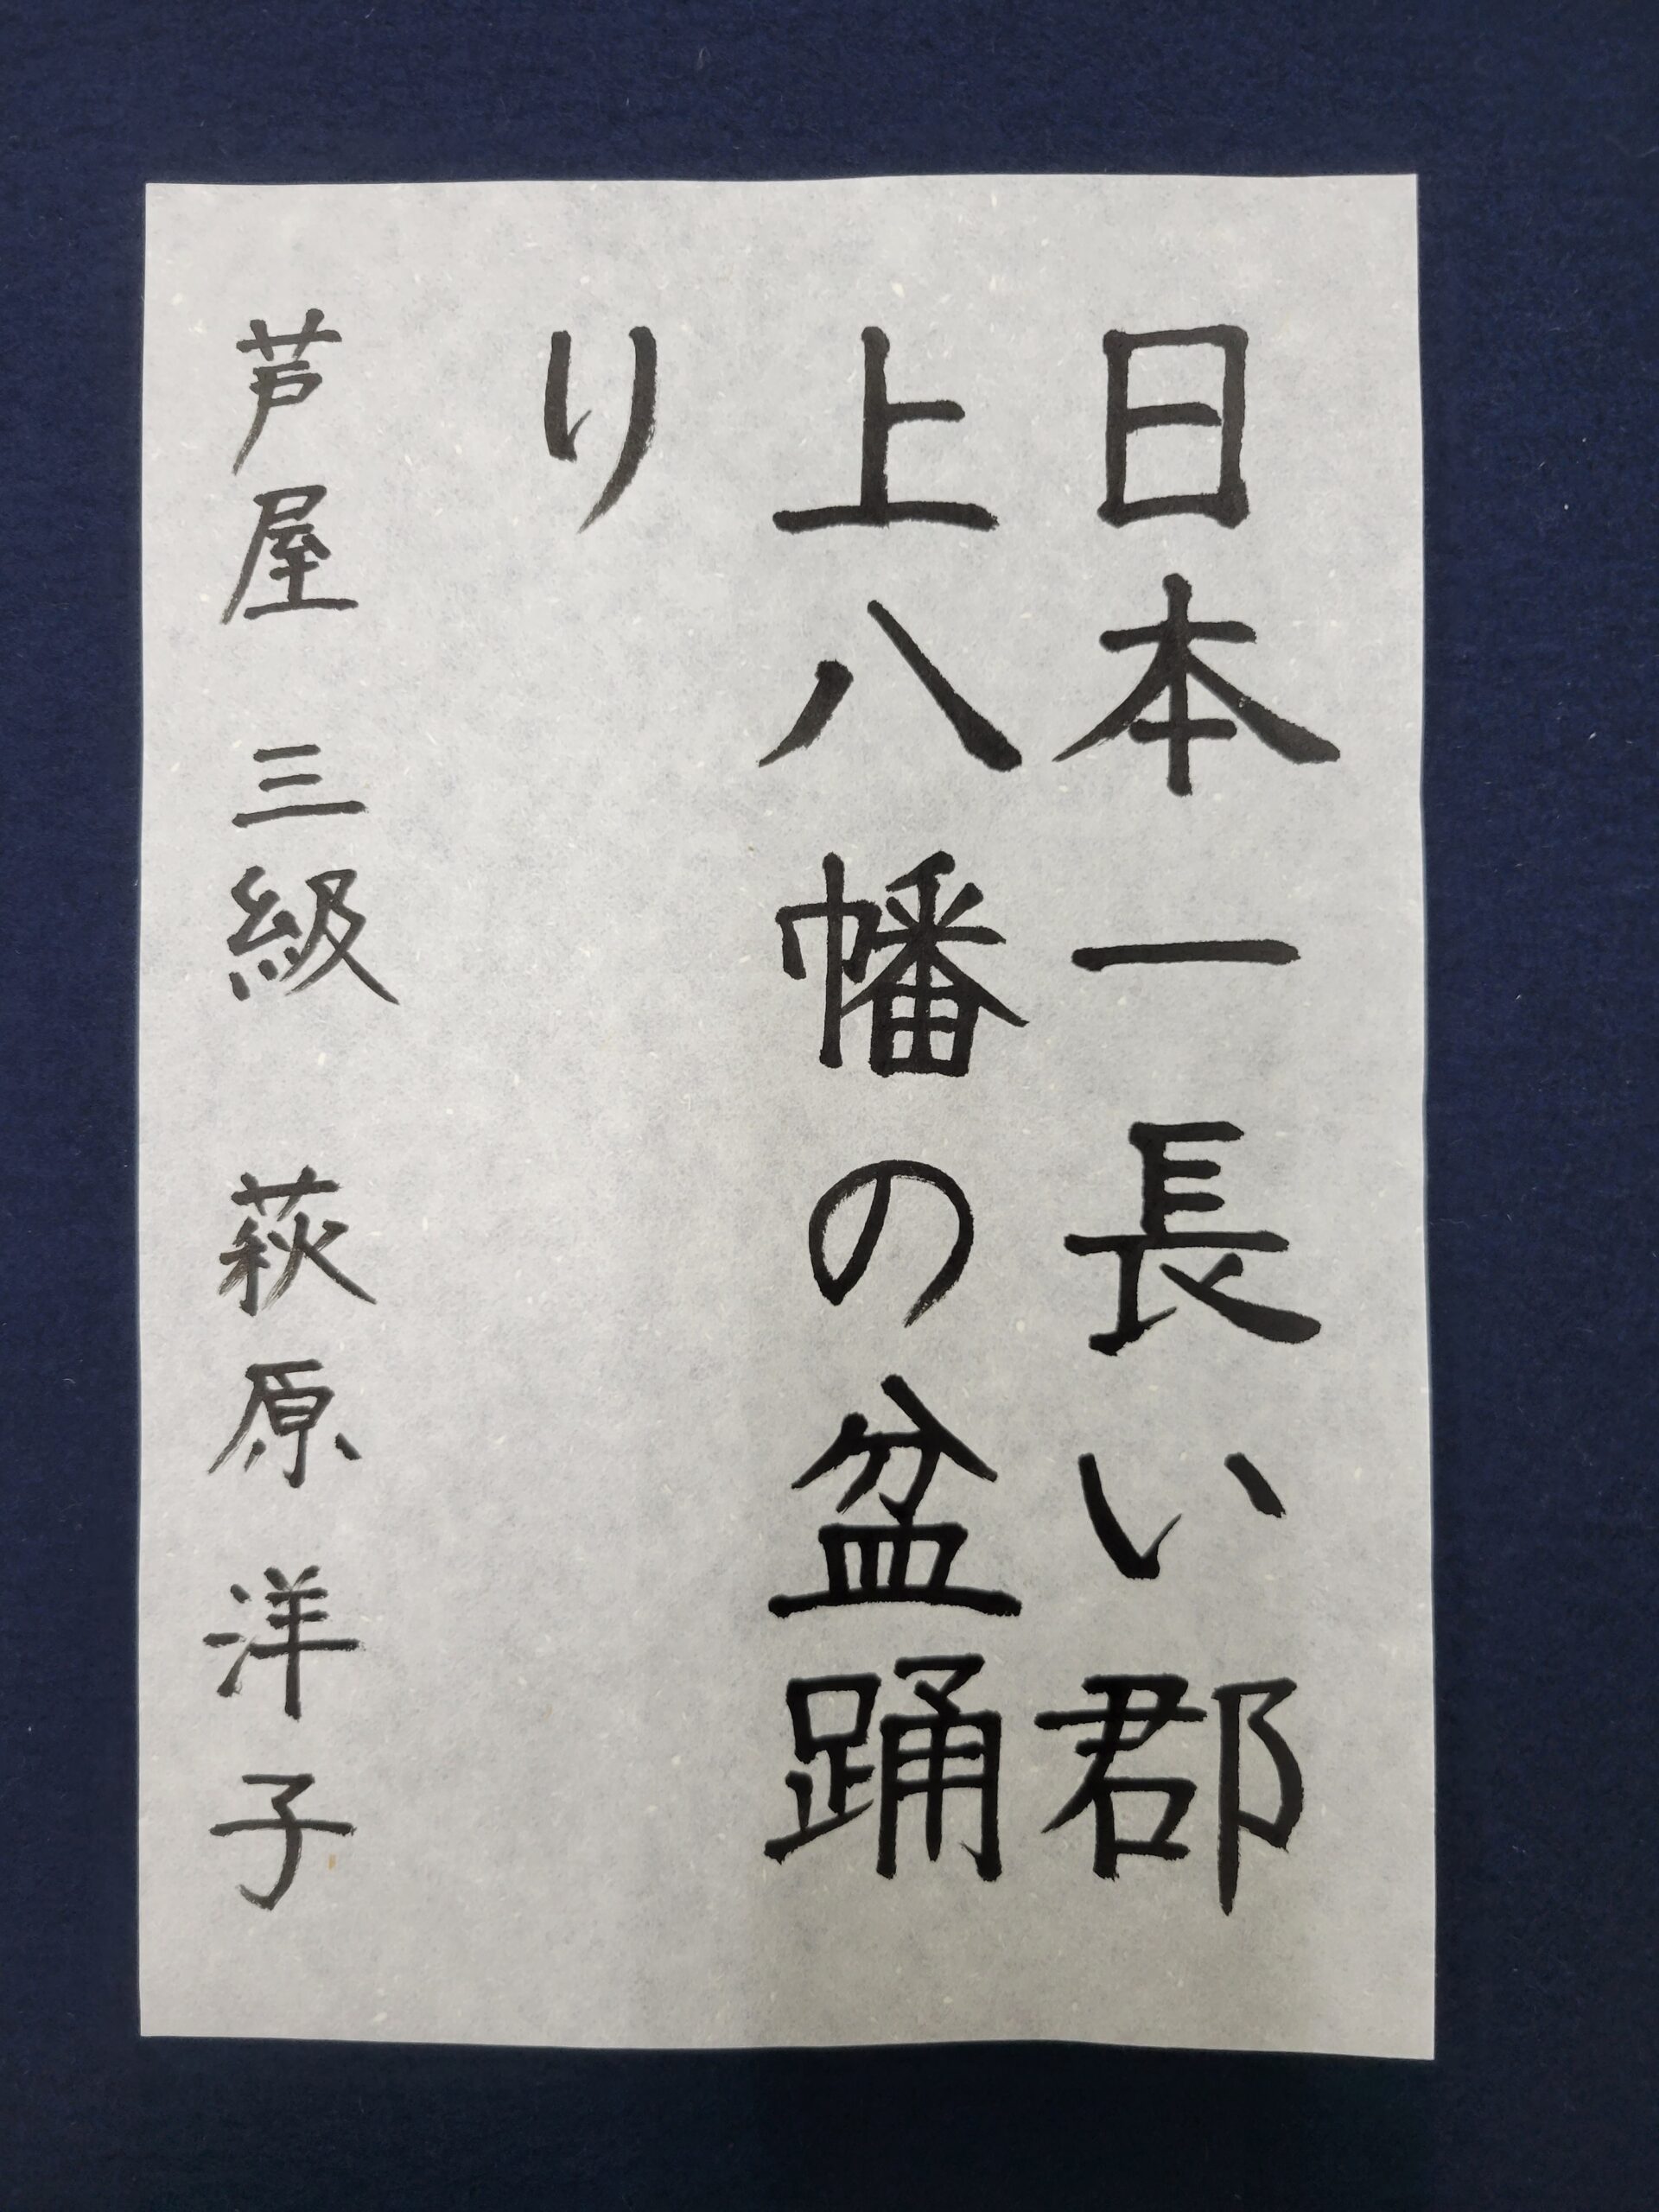 日本一長い郡
上八幡の盆踊
り
芦屋 三級 萩原洋子